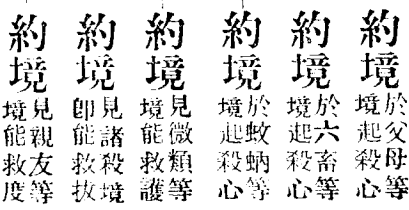 約境於父母等境起殺心
約境於六畜等境起殺心
約境於蚊蚋等境起殺心
約境見微類等境能救護
約境見諸殺境即能救拔
約境見親友等境能救度